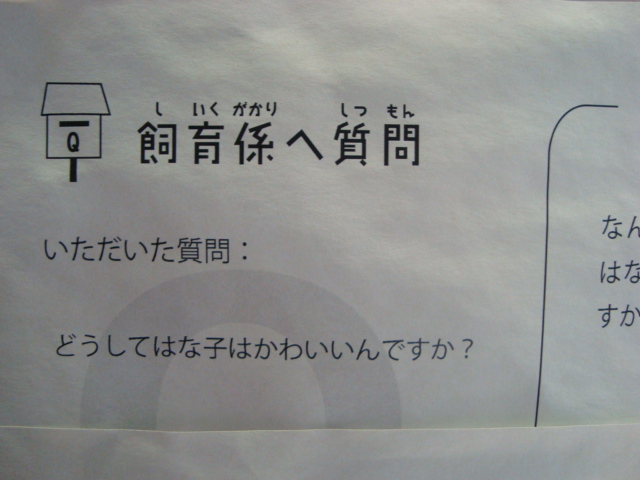 し いく がかり しつ もん
Q
飼育係へ質問
いただいた質問：
どうしてはな子はかわいいんですか？
なん
はな
すか